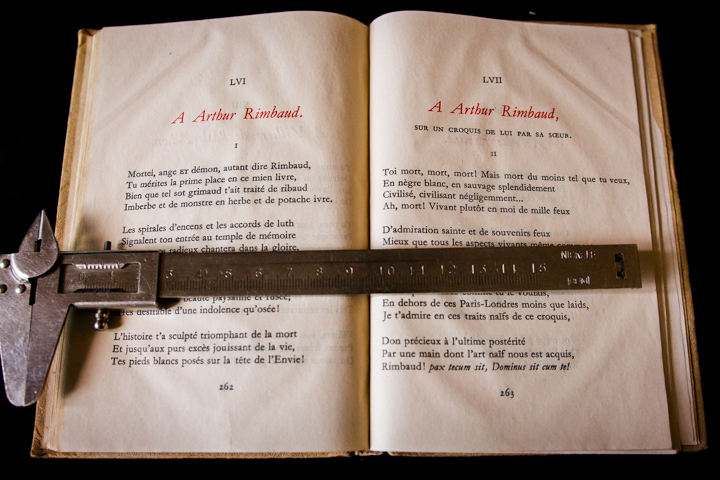 LVI
A Arthur Rimbaud.
I
Mortel, ange ET démon, autant dire Rimbaud,
Tu mérites la prime place en ce mien livre,
Bien que tel sot grimaud t'ait traité de ribaud
Imberbe et de monstre en herbe et de potache ivre.
Les spirales d'encens et les accords de luth
Signalent ton entrée au temple de mémoire
radieux chantera dans la gloire,
beauté paysanne et rusée,
désirable d'une indolence qu'osée!
L'histoire t'a sculpté triomphant de la mort
Et jusqu'aux purs excès jouissant de la vie,
Tes pieds blancs posés sur la tête de l'Envie!
262
LVII
A Arthur Rimbaud,
SUR UN CROQUIS DE LUI PAR SA SŒUR.
II
Toi mort, mort, mort! Mais mort du moins tel que tu veux,
En nègre blanc, en sauvage splendidement
Civilisé, civilisant négligemment...
Ah, mort! Vivant plutôt en moi de mille feux
D'admiration sainte et de souvenirs feux
Mieux que tous les aspects vivants même
comme tu le voulus,
En dehors de ces Paris-Londres moins que laids,
Je t'admire en ces traits naïfs de ce croquis,
Don précieux à l'ultime postérité
Par une main dont l'art naïf nous est acquis,
Rimbaud! pax tecum sit, Dominus sit cum te!
263
3 4 5 6 7 8 9 10 11 12 13 14 15